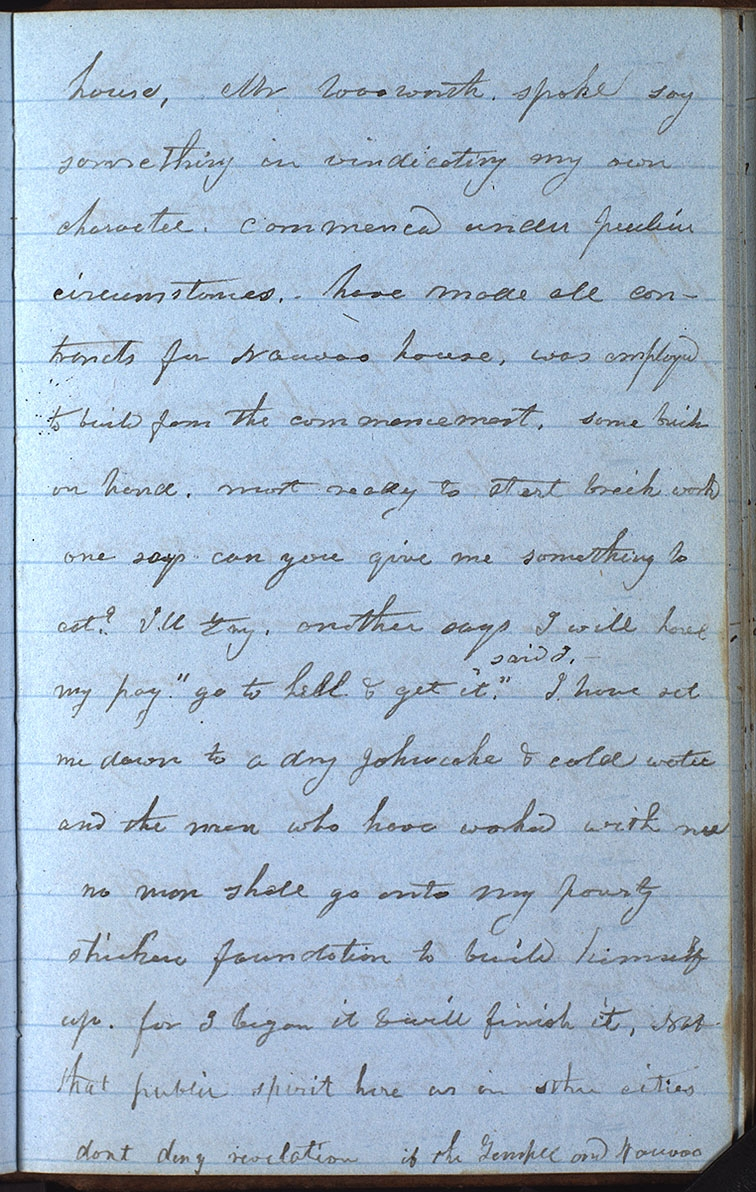 house, Mr Woowoorth. spoke say
something in vindicating my own
character. commenced under peculiar
circumstances,. have made all con-
tracts for Nauvoo house, was employed
to build from the commencement. some brick
on hand. most ready to start brick work
one says can you give me something to
eat? I'll try. another says I will have
said I,—
my pay." go to hell & get it." I have set
me down to a dry Johncake & cold water
and the men who have worked with me
no man shall go onto my poverty
stricken foundation to build himself
up. for I began it & will finish it, Not
that public spirit here as in other cities
dont deny revelation if the Temple and Nauvoo